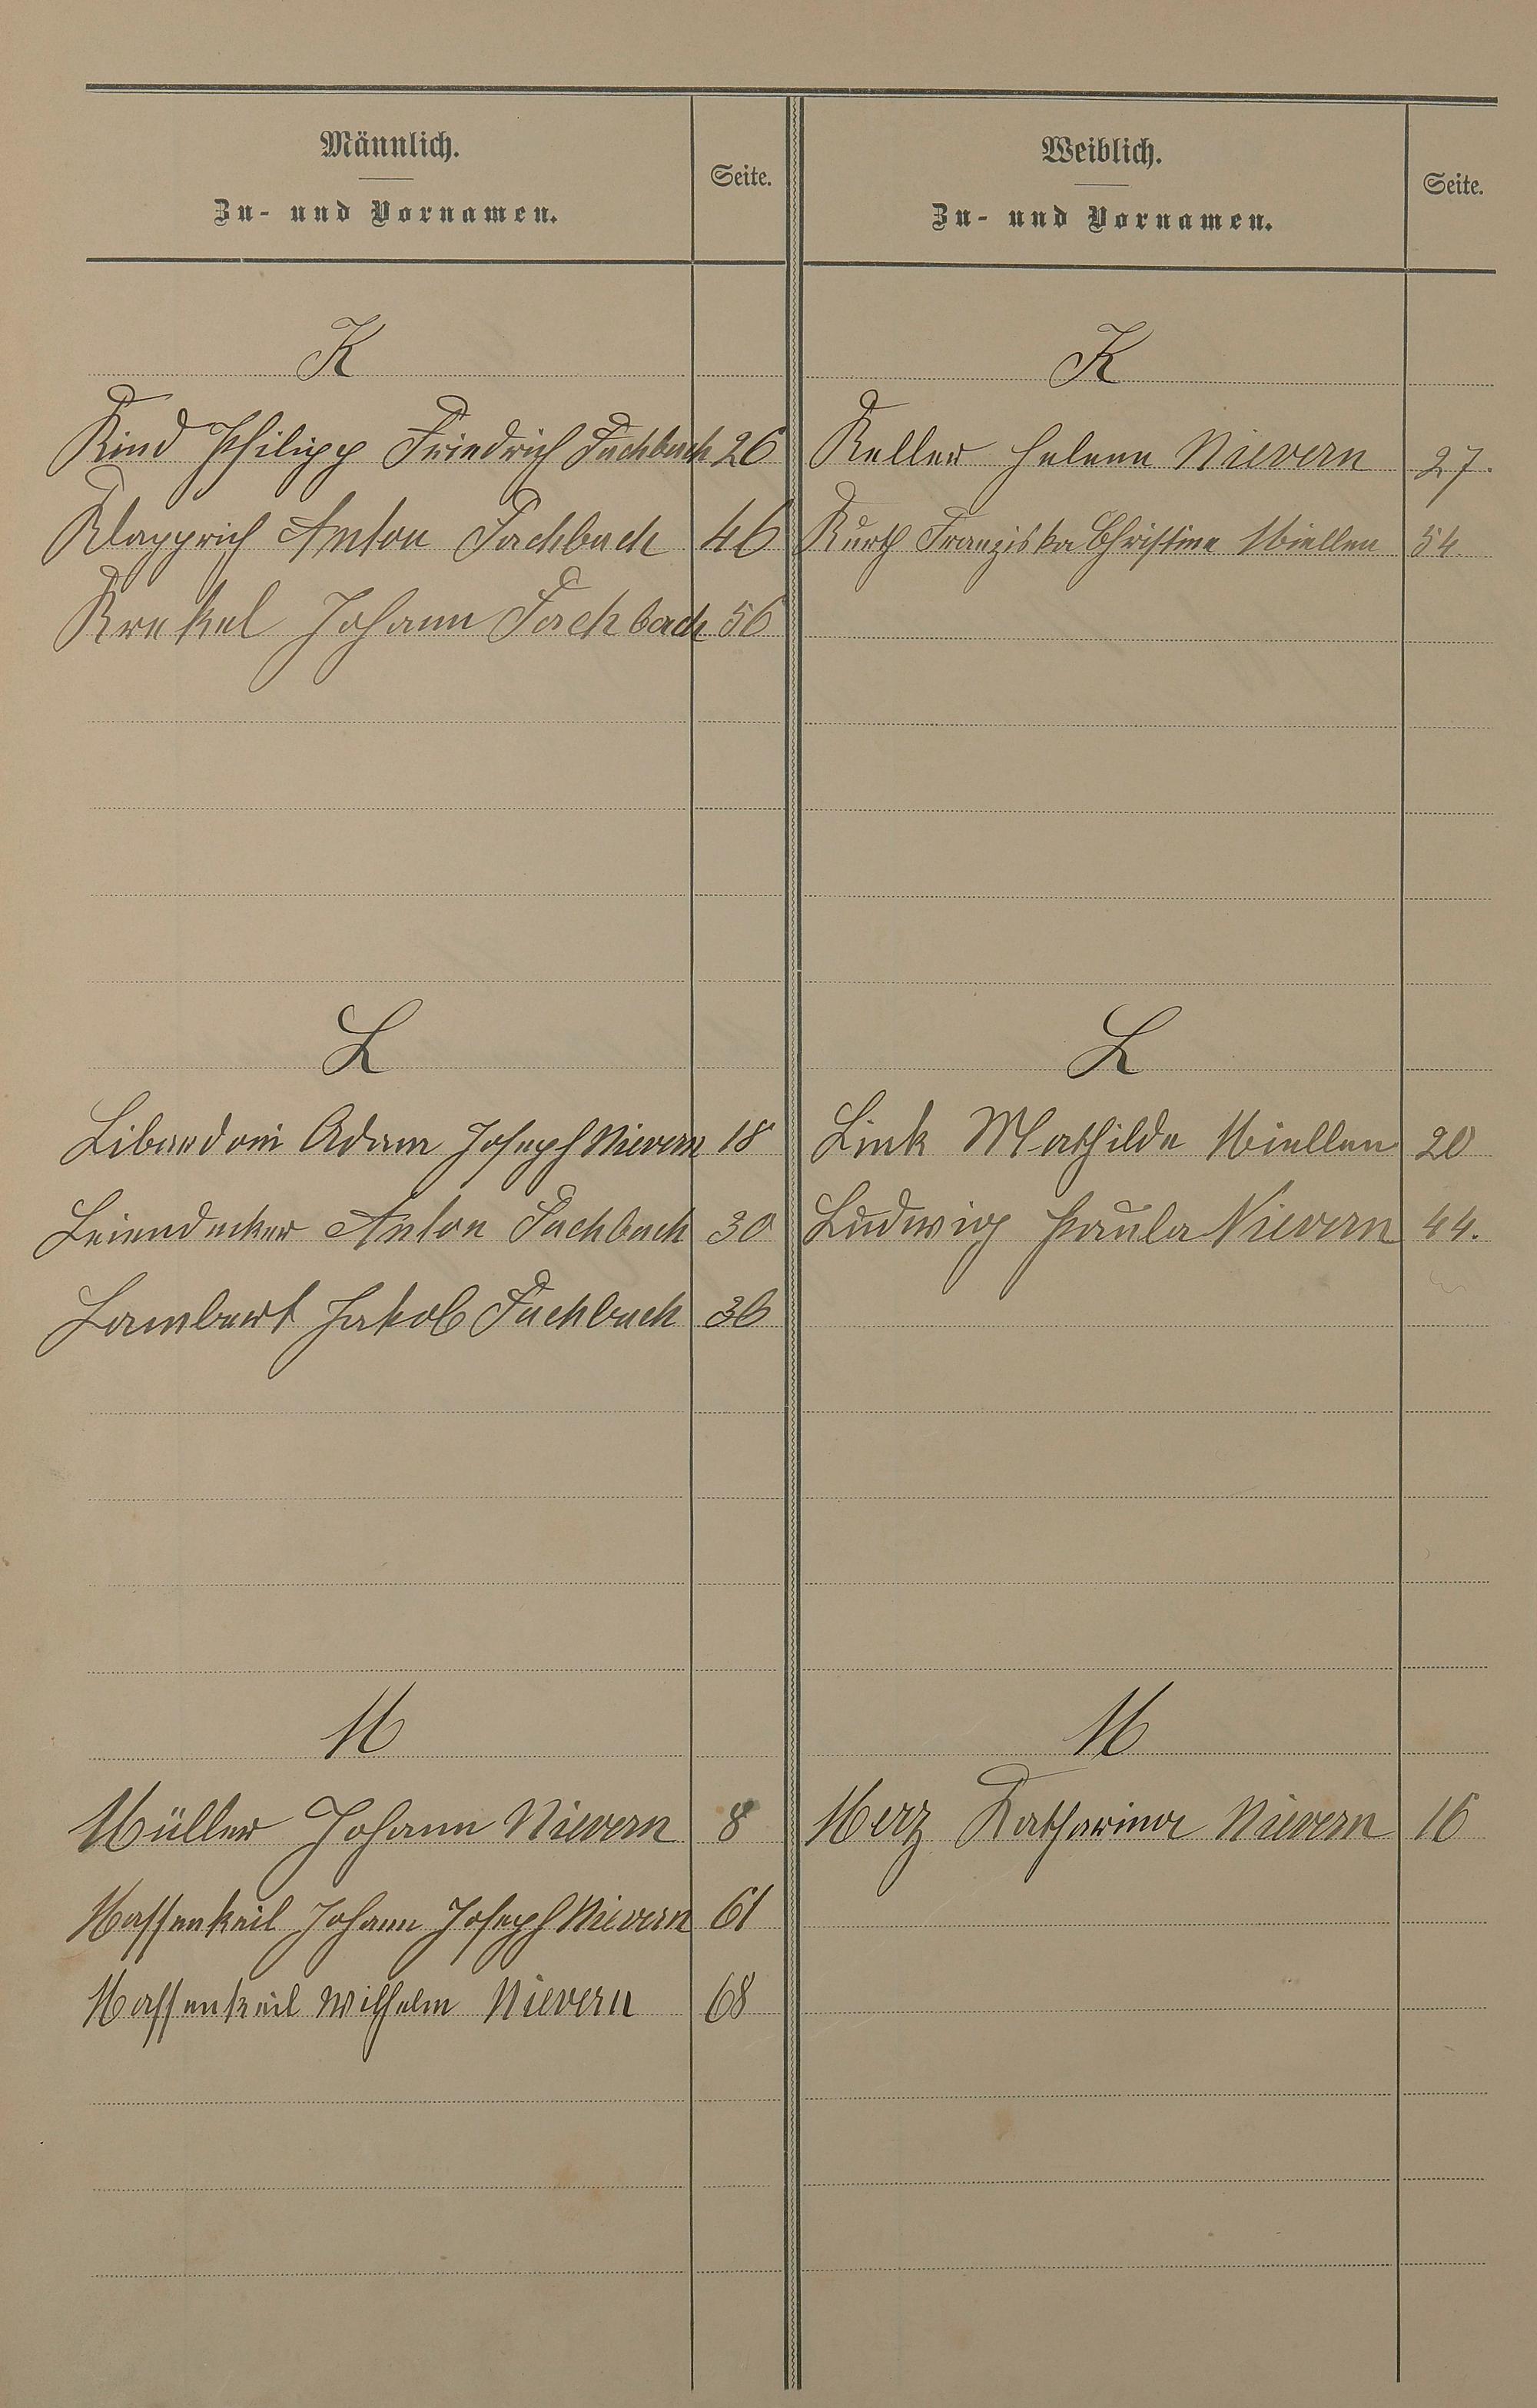 Männlich.
Zu- und Vornamen.
Seite.
K
Kind Philipp Friedrich Fachbach 26
Klapprich Anton Fachbach 46
Krekel Johann Fachbach 56
L
Libardoni Adam Joseph Nievern 18
Leiendecker Anton Fachbach 30
Lambert Jakob Fachbach 36
M
Müller Johann Nievern 8
Massenkeil Johann Joseph Nievern 61
Massenkeil Wilhelm Nievern 68
Weiblich.
Zu- und Vornamen.
Seite.
K
Keller Helene Nievern 27.
Kurth Franziska Christine Miellen 54
L
Link Mathilde Miellen 20
Ludwig Paula Nievern 44.
M
Merz Katharina Nievern 16